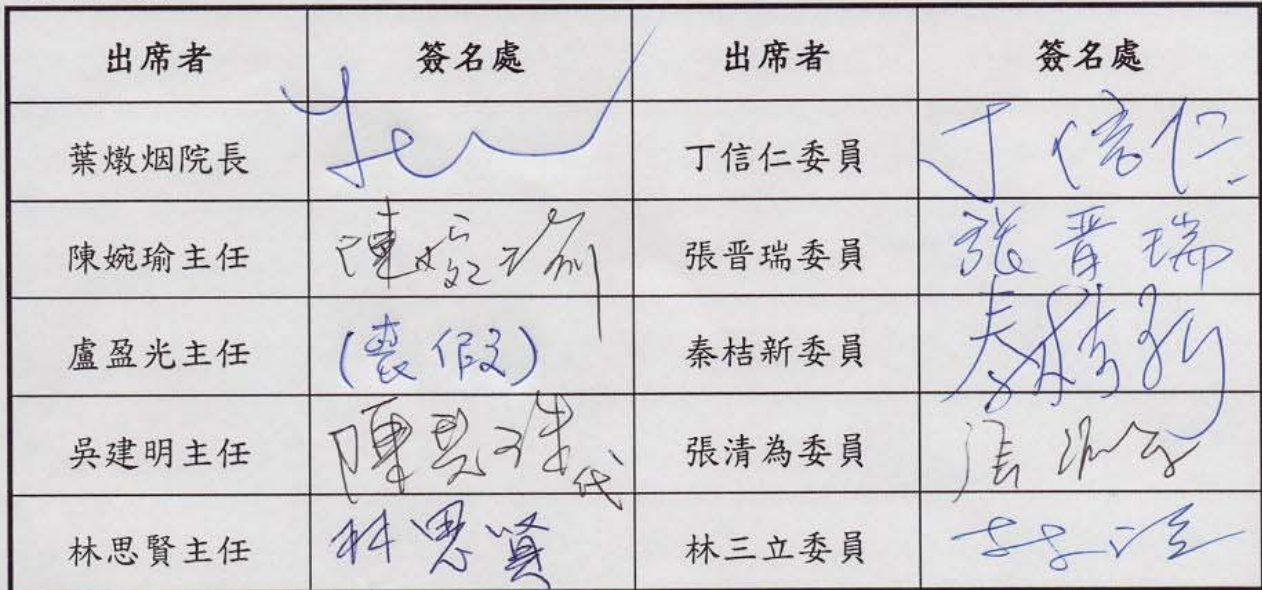 出席者 簽名處 出席者 簽名處
葉燉烟院長 丁信仁委員 丁信仁
陳婉瑜主任 陳婉瑜 張晉瑞委員 張晉瑞
盧盈光主任 (喪假) 秦桔新委員 秦桔新
吳建明主任 代 張清為委員
林思賢主任 林思賢 林三立委員